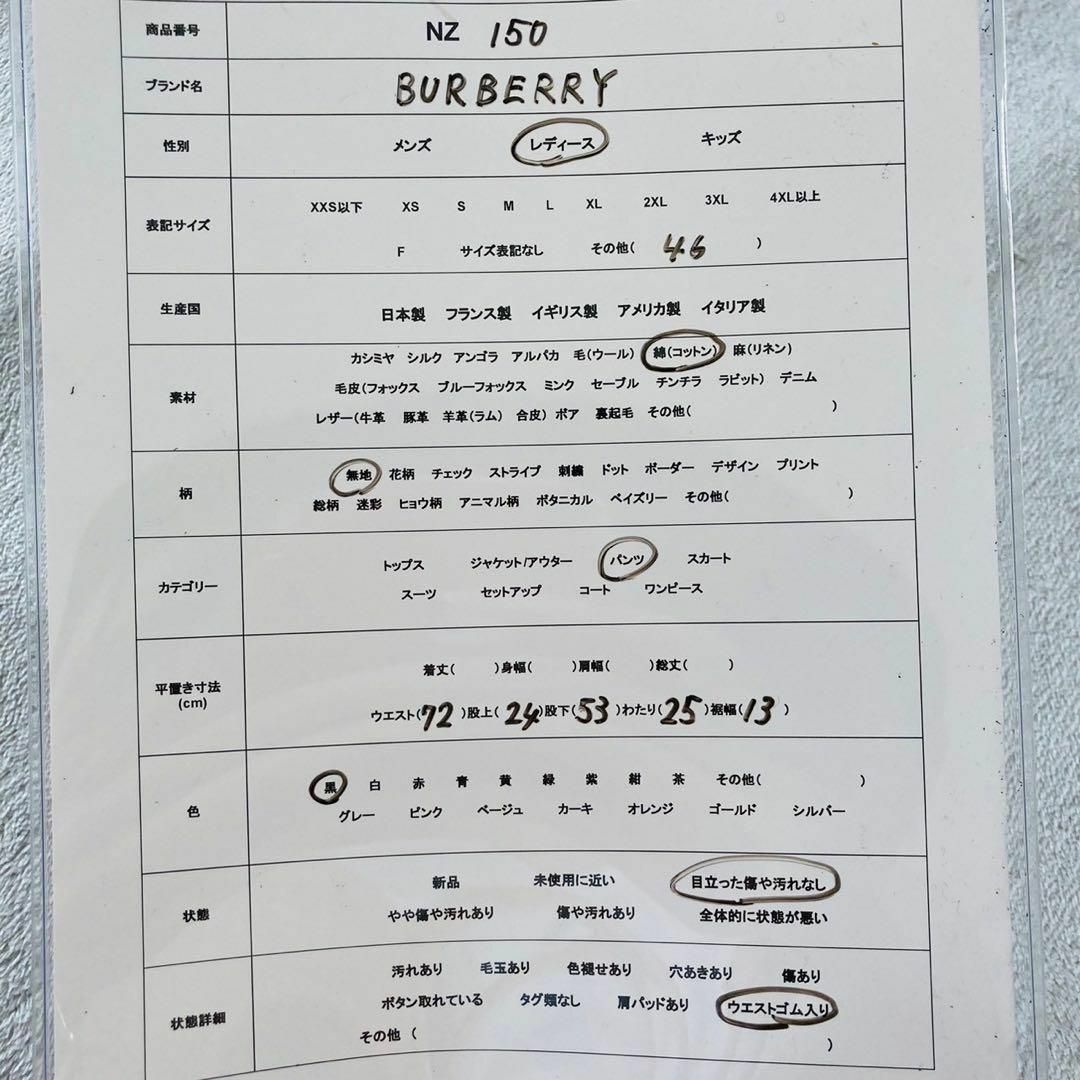 商品番号 NZ 150
ブランド名 BURBERRY
性別 メンズ レディース キッズ
表記サイズ
XXS以下 XS S M L XL 2XL 3XL 4XL以上
F サイズ表記なし その他( 46 )
生産国 日本製 フランス製 イギリス製 アメリカ製 イタリア製
素材
カシミヤ シルク アンゴラ アルパカ 毛(ウール) 綿(コットン) 麻(リネン)
毛皮(フォックス ブルーフォックス ミンク セーブル チンチラ ラビット) デニム
レザー(牛革 豚革 羊革(ラム) 合皮) ボア 裏起毛 その他( )
柄
無地 花柄 チェック ストライプ 刺繍 ドット ボーダー デザイン プリント
総柄 迷彩 ヒョウ柄 アニマル柄 ボタニカル ペイズリー その他( )
カテゴリー
トップス ジャケット/アウター パンツ スカート
スーツ セットアップ コート ワンピース
平置き寸法
(cm)
着丈( )身幅( )肩幅( )総丈( )
ウエスト(72)股上(24)股下(53)わたり(25)裾幅(13)
色
黒 白 赤 青 黄 緑 紫 紺 茶 その他( )
グレー ピンク ベージュ カーキ オレンジ ゴールド シルバー
状態
新品 未使用に近い 目立った傷や汚れなし
やや傷や汚れあり 傷や汚れあり 全体的に状態が悪い
状態詳細
汚れあり 毛玉あり 色褪せあり 穴あきあり 傷あり
ボタン取れている タグ類なし 肩パッドあり ウエストゴム入り
その他 ( )